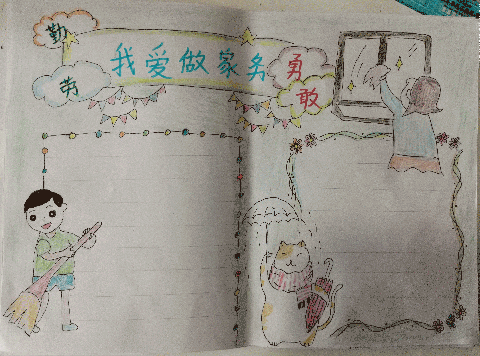 勤
劳
我爱做家务
勇
敢